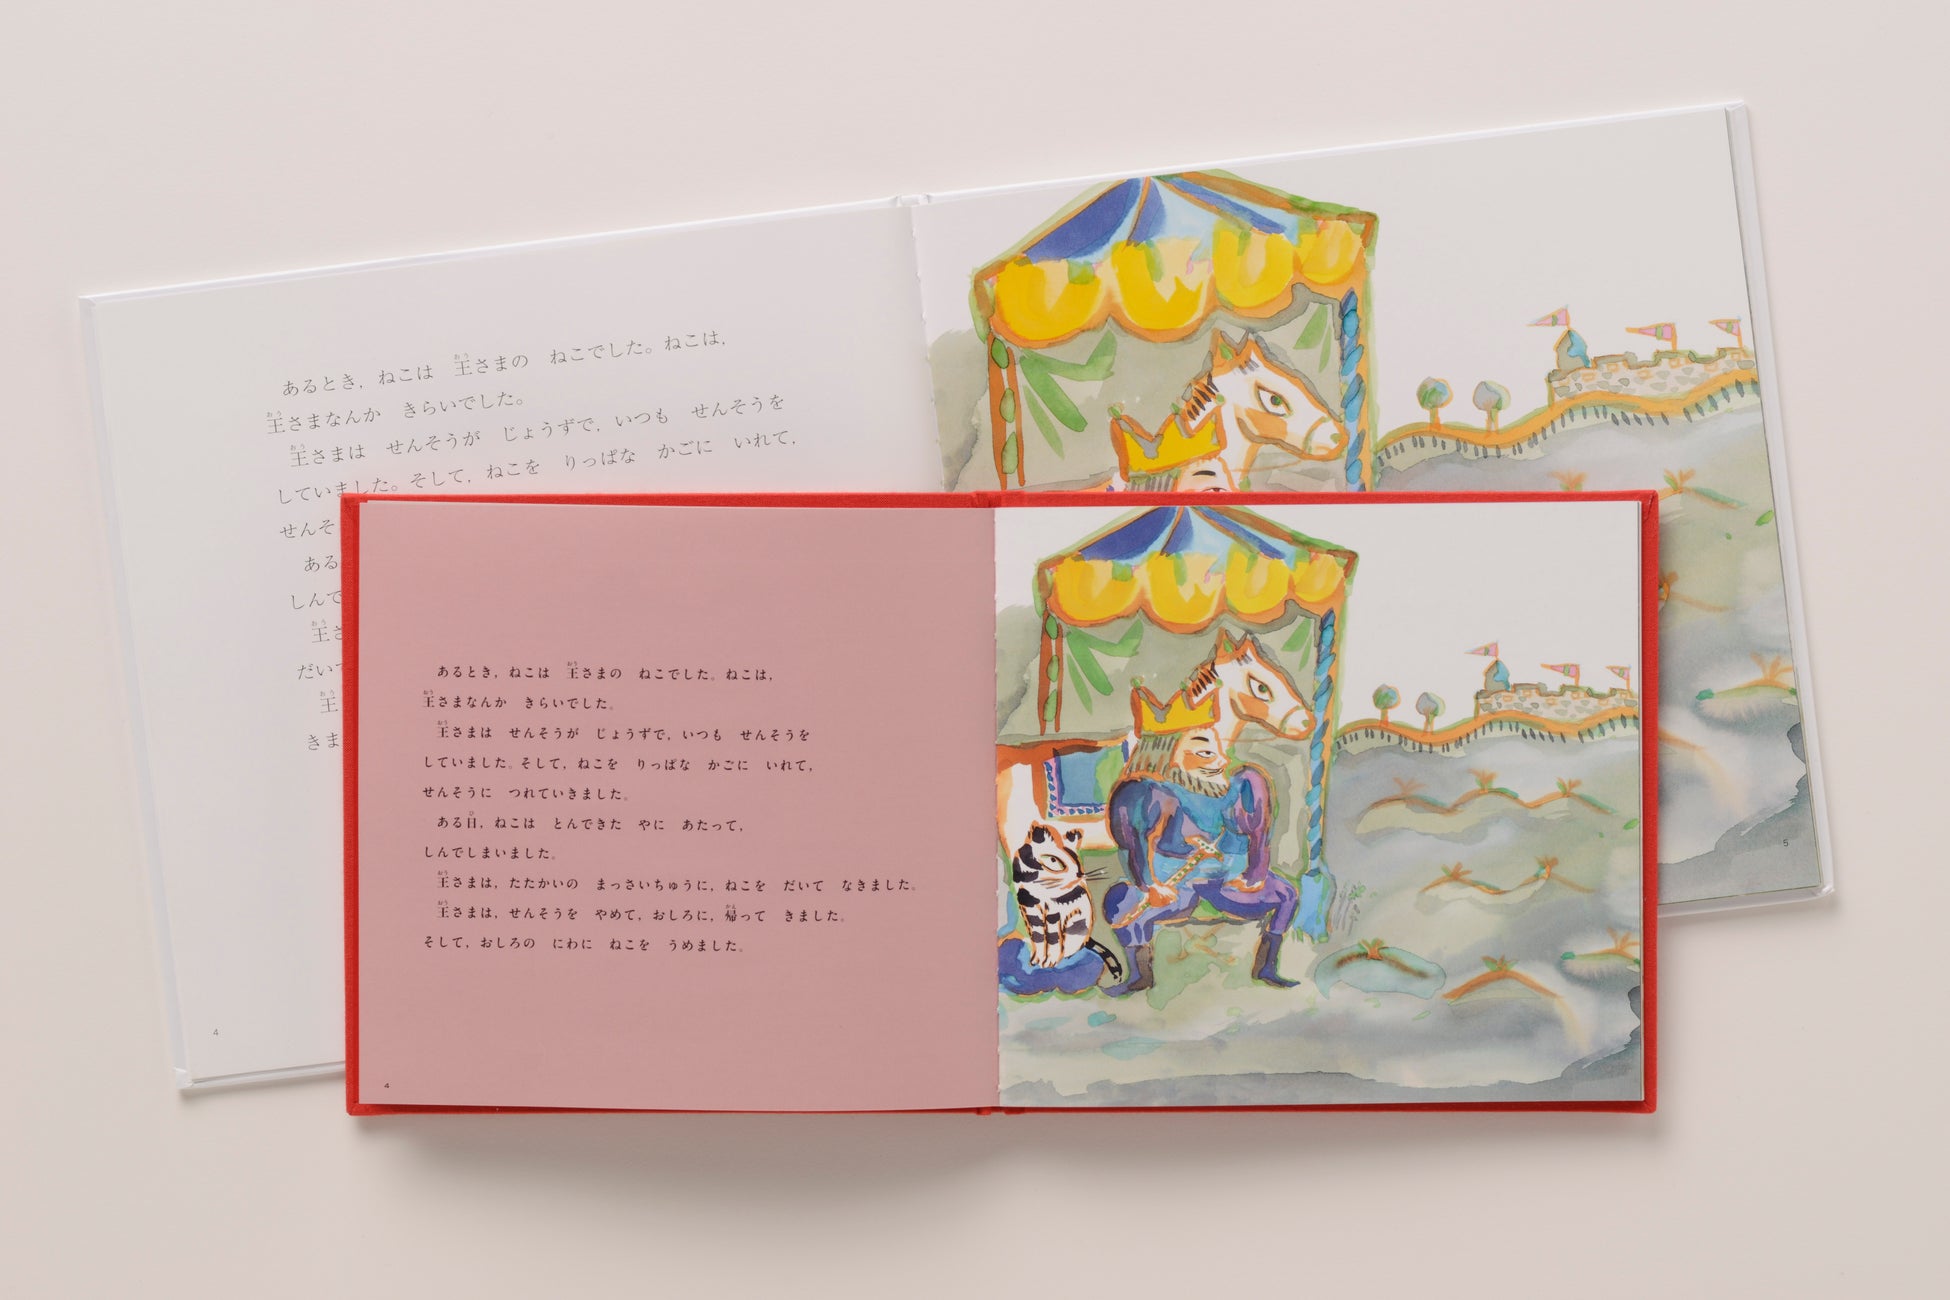 あるとき，ねこは　王さまの　ねこでした。ねこは，
王さまなんか　きらいでした。
王さまは　せんそうが　じょうずで，いつも　せんそうを
していました。そして，ねこを　りっぱな　かごに　いれて，
せんそ
ある
しんで
王さ
だいて
王
きま
4
5
あるとき，ねこは　王さまの　ねこでした。ねこは，
王さまなんか　きらいでした。
王さまは　せんそうが　じょうずで，いつも　せんそうを
していました。そして，ねこを　りっぱな　かごに　いれて，
せんそうに　つれていきました。
ある日，ねこは　とんできた　やに　あたって，
しんでしまいました。
王さまは，たたかいの　まっさいちゅうに，ねこを　だいて　なきました。
王さまは，せんそうを　やめて，おしろに，帰って　きました。
そして，おしろの　にわに　ねこを　うめました。
4